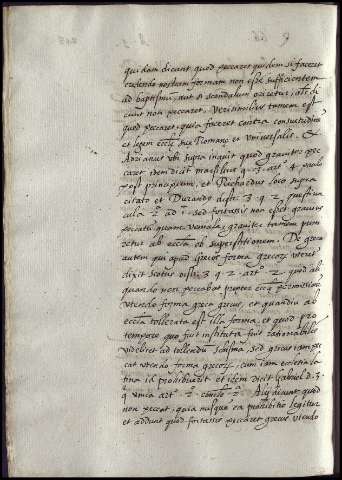 quidam dicunt quod peccaret quidem si faceret
credendo nostram formam non esse sufficientem
ad baptismũ, aut si scandalum oriretur, alr̃ di
cunt non peccaret. Verisimilius tamen est
quod peccaret, quia faceret contra consuetudinẽ
et legem eccłe sue Romane et universalis. &
Adrianus ubi supra inquit quod graviter pec
caret idem dicit 4. q. 3. artº 4. paulo
post principium, et Richardus loco supra
citato et Durandus disti. 3 q. 2
ad 1. sed fortassis non esset gravius
peccatũ quam veniale, graviter tamen puni
retur ab eccłia ob superstitionem. De greco
autem qui apud grecos forma grecorũ
dixit Scotus disti. 3 q. 2 artº 2. quod ali
quando non peccabat propter ecce permissionẽ
utendo forma greca grecus, et quandiu ab
eccłia tollerata est illa forma, et quod pro
tempore quo fuit instituta fuit rationabilis
videlicet ad tollendũ schisma, sed grecus iam pec
cat utendo forma grecorũ, cum iam ecclesia la
tina id prohibuerit et idem dicit Gabriel d. 3.
q. unica artº 2º conclo. 2ª. Alij dicunt quod
non peccat, quia nusquam ea prohibitio legitur
et addunt quod fortassis peccaret grecus utendo